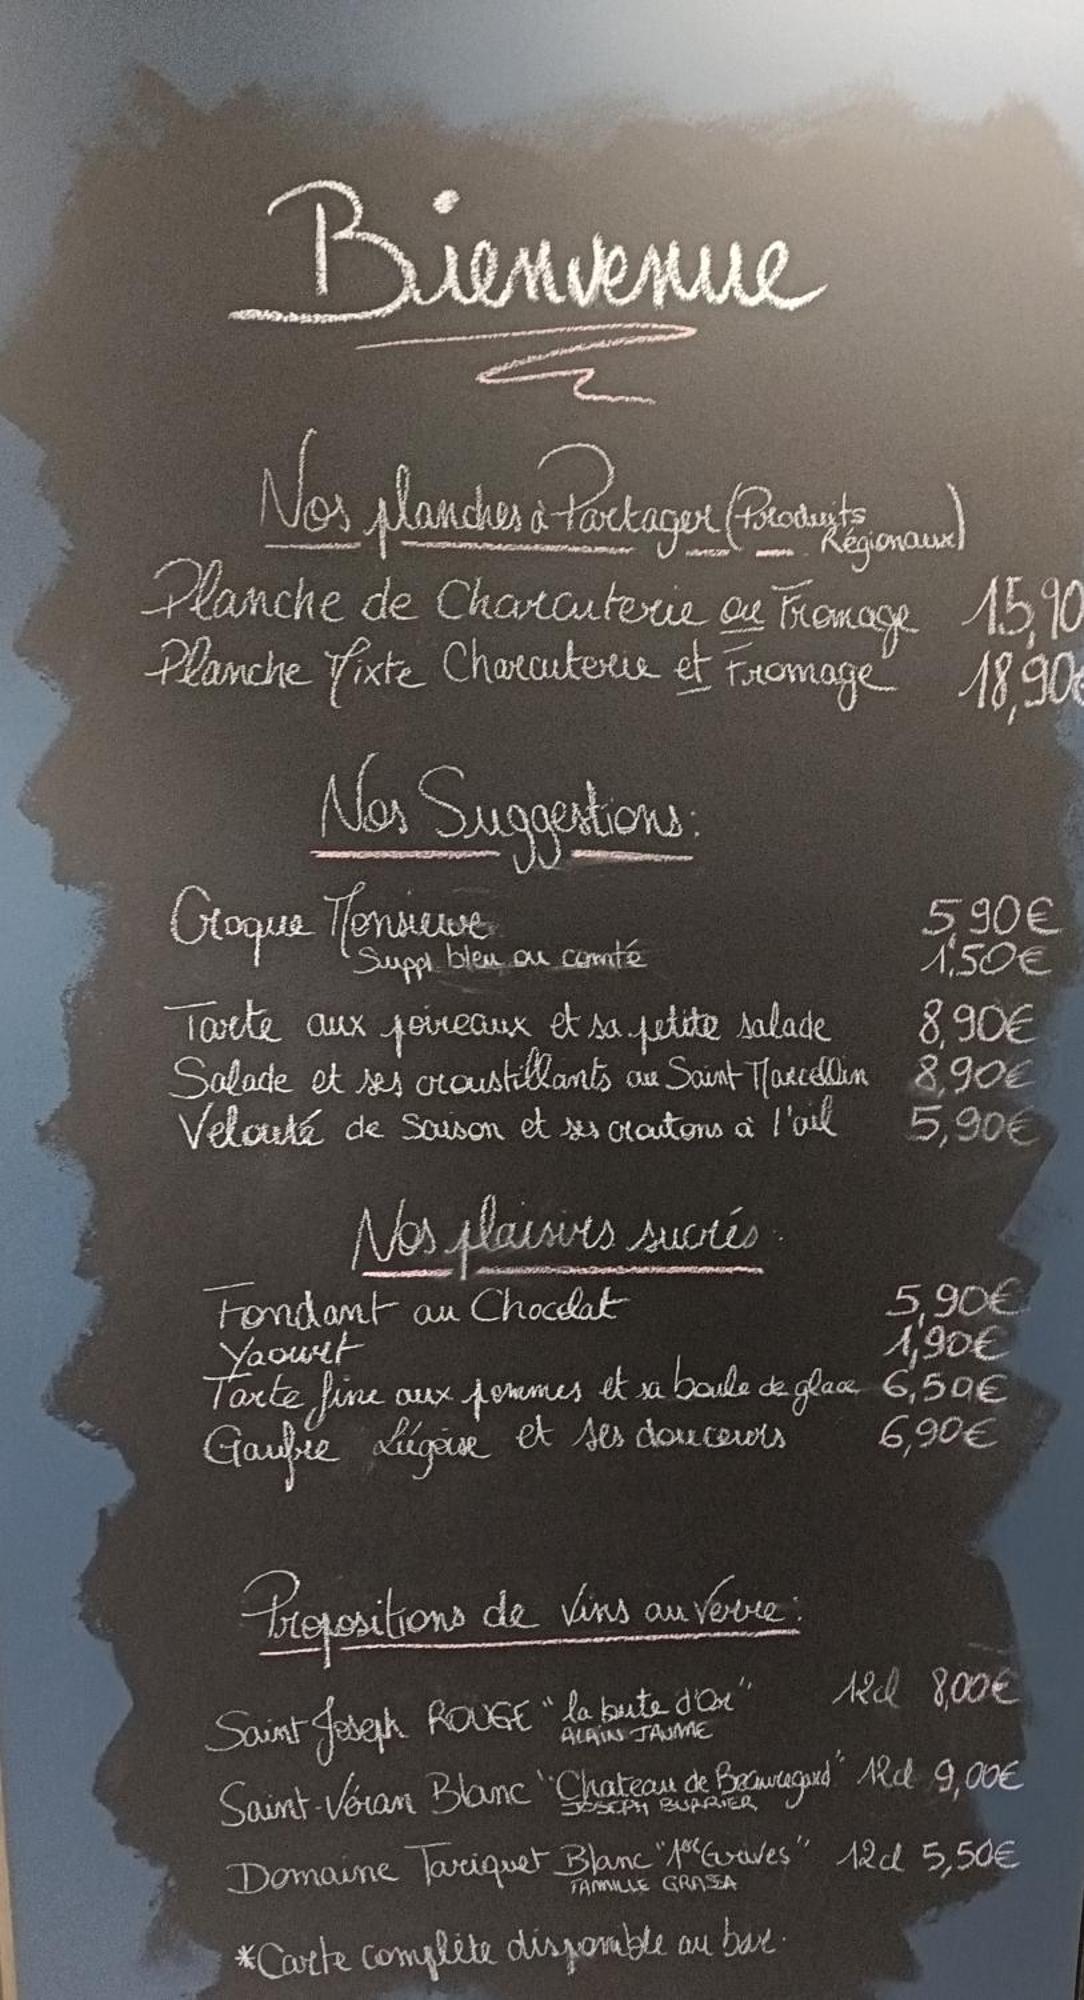 Bienvenue
Nos planches à Partager (Produits Régionaux)
Planche de Charcuterie ou Fromage 15,90
Planche Mixte Charcuterie et Fromage 18,90€
Nos Suggestions:
Croque Monsieur 5,90€
Suppl bleu ou comté 1,50€
Tarte aux poireaux et sa petite salade 8,90€
Salade et ses croustillants au Saint Marcellin 8,90€
Velouté de Saison et ses croutons à l'ail 5,90€
Nos plaisirs sucrés:
Fondant au Chocolat 5,90€
Yaourt 1,90€
Tarte fine aux pommes et sa boule de glace 6,50€
Gaufre Liégoise et ses douceurs 6,90€
Propositions de Vins au Verre:
Saint Joseph ROUGE "la bute d'Or" 12cl 8,00€
ALAIN JAUME
Saint-Véran Blanc "Chateau de Beauregard" 12cl 9,00€
JOSEPH BURRIER
Domaine Tariquet Blanc "1ères Graves" 12cl 5,50€
FAMILLE GRASSA
*Carte complète disponible au bar.